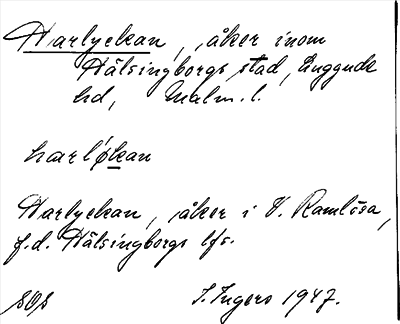 Harlyckan, åker inom
Hälsingborgs stad, Luggude
hd, Malm. l.
harløkan
Harlyckan, åker i V. Ramlösa,
f.d. Hälsingborgs lfs.
I. Ingers 1947.